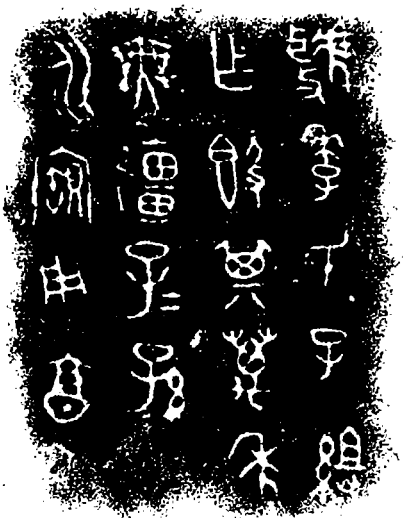 虢季氏子組
乍𣪘其萬年
無疆子=孫=
永寶用享